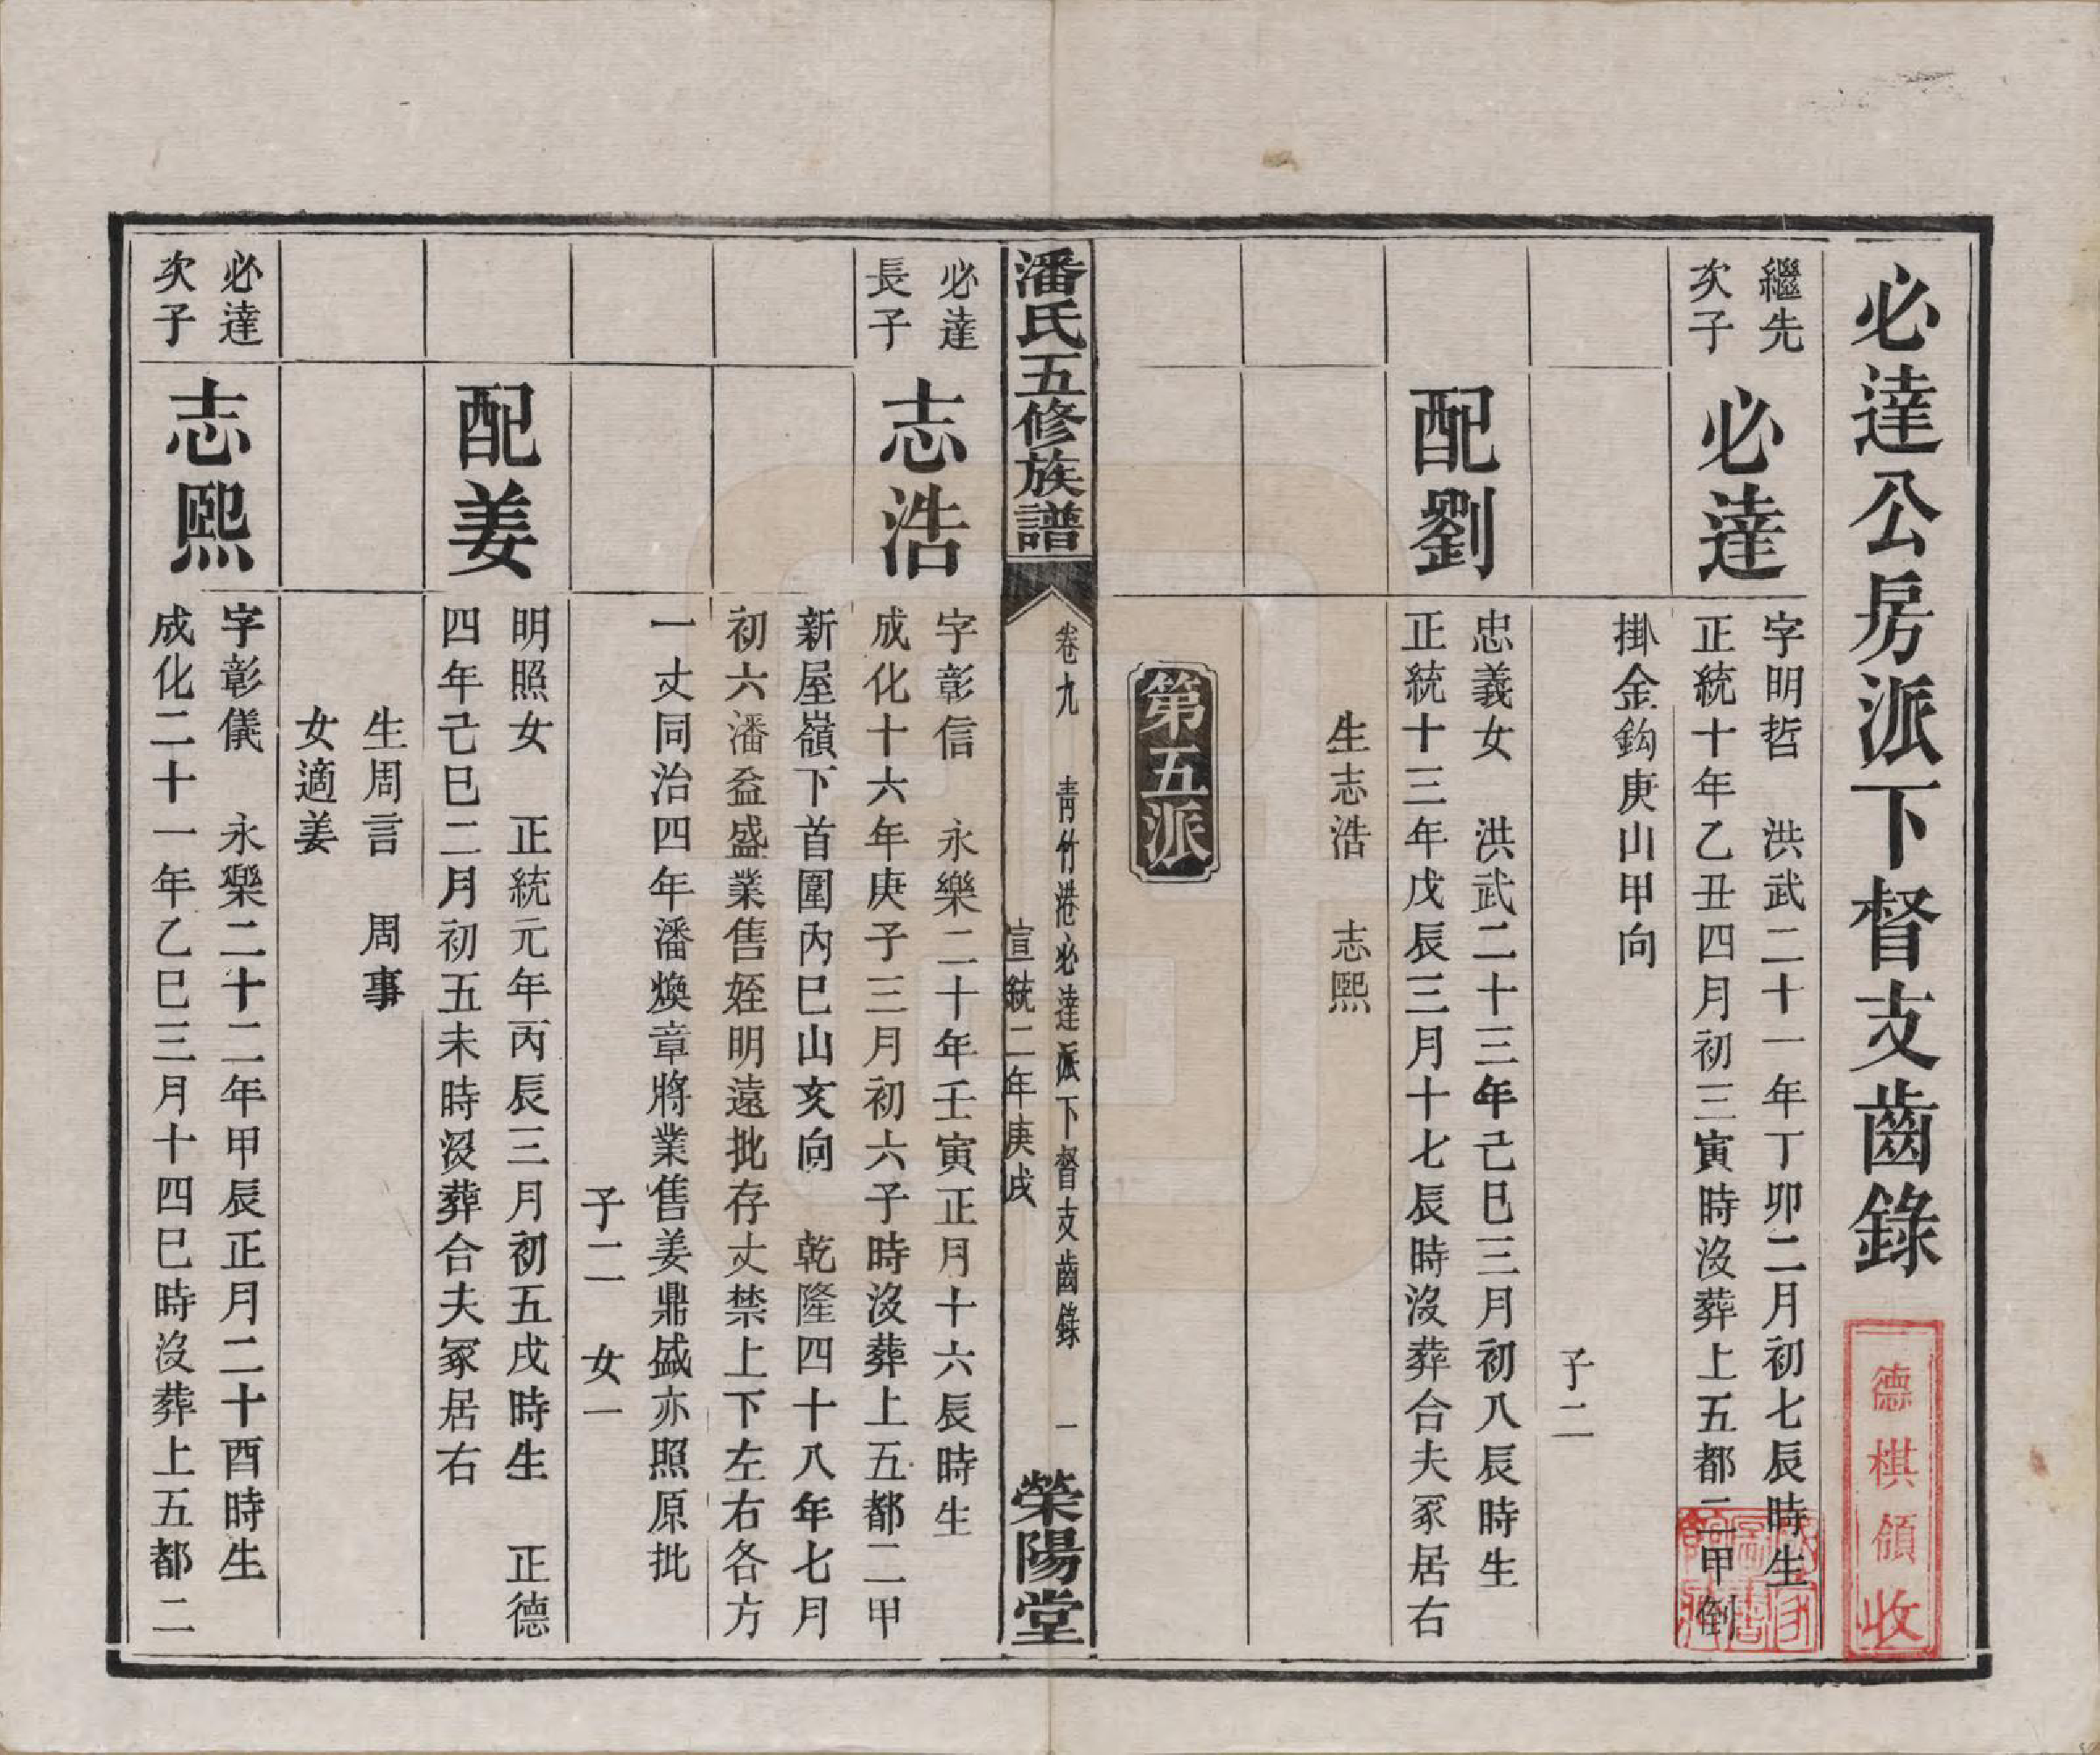 必達公房派下督支齒錄
德棋領收
繼先
次子
必達
字明哲　洪武二十一年丁卯二月初七辰時生
正統十年乙丑四月初三寅時沒葬上五都二甲倒
掛金鈎庚山甲向
子二
配劉
忠義女　洪武二十三年己巳三月初八辰時生
正統十三年戊辰三月十七辰時沒葬合夫冢居右
生志浩　志熙
第五派
潘氏五修族譜
卷九　青竹港必達派下督支齒錄　一
宣統二年庚戌
榮陽堂
必達
長子
志浩
字彰信　永樂二十年壬寅正月十六辰時生
成化十六年庚子三月初六子時沒葬上五都二甲
新屋嶺下首圍內巳山亥向　乾隆四十八年七月
初六潘益盛業售姪明遠批存丈禁上下左右各方
一丈同治四年潘煥章將業售姜鼎盛亦照原批
子二　女一
配姜
明照女　正統元年丙辰三月初五戌時生　正德
四年己巳二月初五未時沒葬合夫冢居右
生周言　周事
女適姜
必達
次子
志熙
字彰儀　永樂二十二年甲辰正月二十酉時生
成化二十一年乙巳三月十四巳時沒葬上五都二